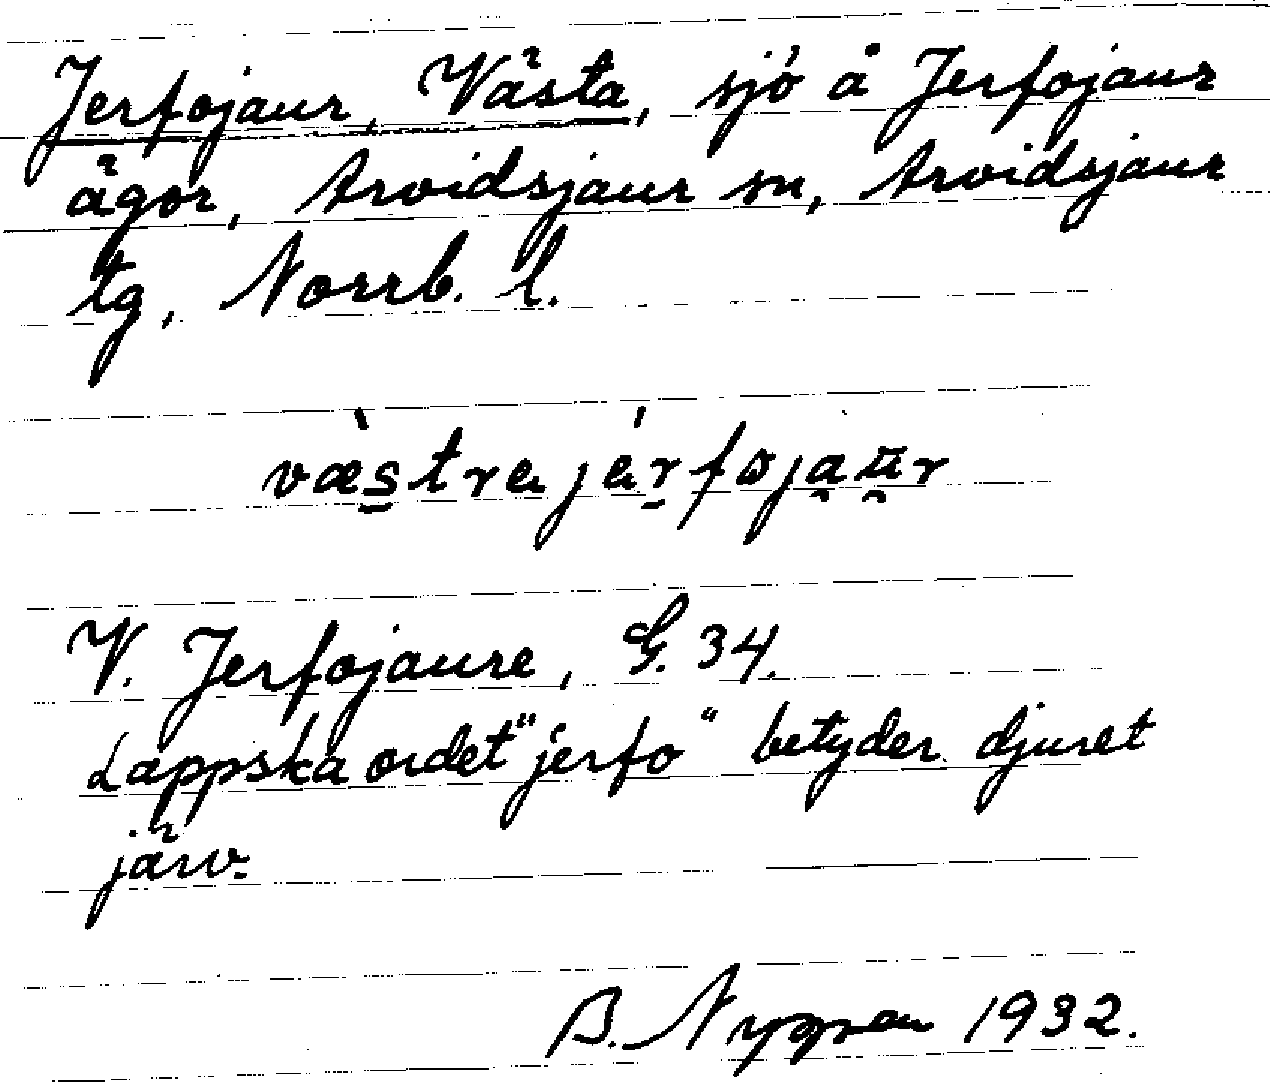 Jerfojaur, Västa, sjö å Jerfojaur
ägor, Arvidsjaur sn, Arvidsjaur
tg, Norrb. l.
væ̀stra jérfojau̯r
V. Jerfojaure, G. 34.
Lappska ordet "jerfo" betyder djuret
järv.
B. Nygren 1932.